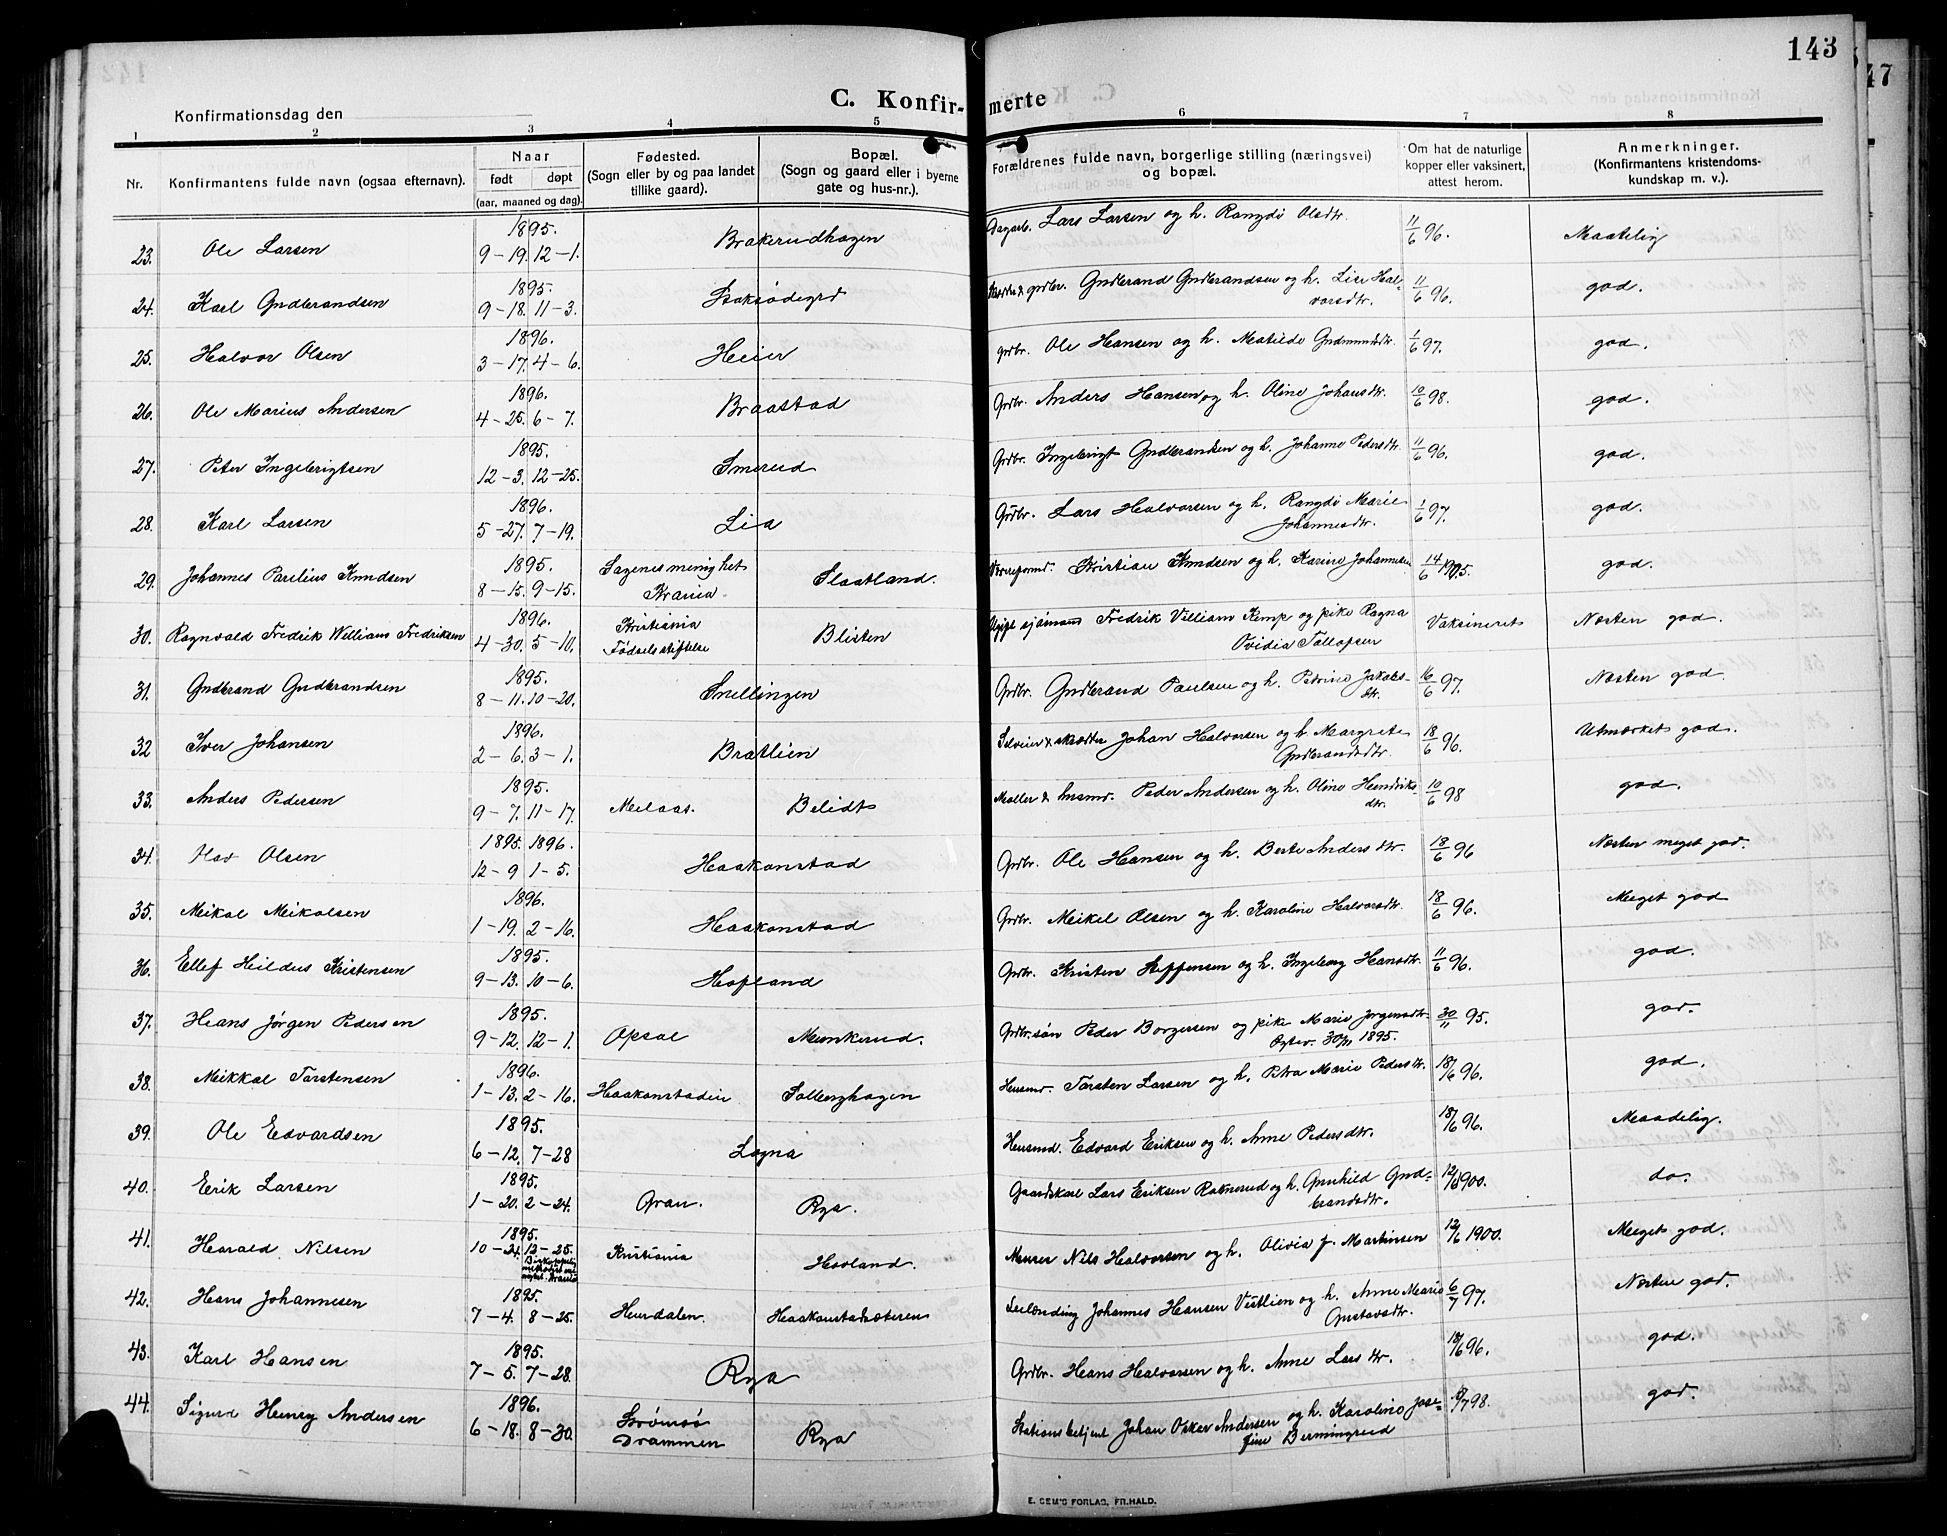 143
47
C. Konfir- merte
Konfirmationsdag den
1 2 3 4 5 6 7 8
Nr. Konfirmantens fulde navn (ogsaa efternavn). Naar født døpt (aar, maaned og dag). Fødested. (Sogn eller by og paa landet tillike gaard). Bopæl. (Sogn og gaard eller i byerne gate og hus-nr.). Forældrenes fulde navn, borgerlige stilling (næringsvei) og bopæl. Om hat de naturlige kopper eller vaksinert, attest herom. Anmerkninger. (Konfirmantens kristendoms-kundskap m. v.).
23. Ole Larsen 1895. 9-19. 12-1. Brakerudhagen Dagarb. Lars Larsen og h. Rangdi Olsdtr. 11/6 96. Maatelig
24. Karl Gudbrandsen 1895. 9-18. 11-3. grdbr. Gudbrand Gudbrandsen og h. Lise Hal-
vorsdtr. 11/6 96. god.
25. Halvor Olsen 1896. 3-17. 4-6. Heier grdbr. Ole Hansen og h. Matilde Gudmundsdtr. 1/6 97. god.
26. Ole Marius Andersen 1896. 4-25. 6-7. Braastad Grdbr. Anders Hansen og h. Oline Johansdtr. 10/6 98. god.
27. Peter Ingebrigtsen 1895. 12-3. 12-25. Smerud Grdbr. Ingebrigt Gudbrandsen og h. Johanne Pedersdtr. 11/6 96. god.
28. Karl Larsen 1896. 5-27. 7-19. Lia Grdbr. Lars Halvorsen og h. Rangdi Marie
Johannesdtr. 1/6 97. god.
29. Johannes Paulius Knudsen 1895. 8-15. 9-15. Sagenes menighet
Krania. Slaatland. Kristian Knudsen og h. Karine Johannesen 14/6 1905. god.
30. Ragnvald Fredrik William Fredriksen 1896. 4-30. 5-10. Kristiania
Fødselsstiftelse Blisten Ugift sjømand Fredrik Villiam Kemp og pike Ragna
Ovidia Tollefsen Vaksineret Næsten god.
31. Gudbrand Gudbrandsen 1895. 8-11. 10-20. Snellingen Grdbr. Gudbrand Paulsen og h. Petrine Jakobs-
dtr. 16/6 97. Næsten god.
32 Iver Johansen 1896. 2-6. 3-1. Bratlien Selveier & skrædder Johan Halvorsen og h. Margrete
Gudbrandsdtr. 18/6 96. Utmærket god.
33. Anders Pedersen 1895. 9-7. 11-17. Melaas. Belidt Møller & husmd. Peder Andersen og h. Oline Hendriks-
dtr. 10/6 98 god.
34. Olav Olsen 1895. 1896. 12-9 1-5. Haakonstad Grdbr. Ole Hansen og h. Berte Andersdtr. 18/6 96 Næsten meget god.
35. Meikal Meikalsen 1896. 1-19. 2-16. Haakonstad Grdbr. Meikel Olsen og h. Karoline Halvorsdtr. 18/6 96. Meget god
36. Ellef Hildus Kristensen 1895. 9-13. 10-6. Hofland Grdbr. Kristen Steffensen og h. Ingeborg Hansdtr. 11/6 96. god.
37. Hans Jørgen Pedersen 1895. 9-12. 12-1. Opsal Munkerud. Grdbr.søn Peder Borgersen og pike Marie Jørgensdtr.
30/11 1895. 30/11 95. god.
38. Mikkal Torstensen 1896. 1-13. 2-16. Haakonstadeie Solberghagen Husmd. Torsten Larsen og h. Petra Marie Pedersdtr. 18/6 96. god.
39. Ole Edvardsen 1895. 6-12. 7-28 Logna Husmd. Edvard Eriksen og h. Anne Pedersdtr. 18/6 96. Maadelig.
40. Erik Larsen 1895. 1-20. 2-24. Gran. Rya. Gaardskarl Lars Eriksen Raknerud og h. Gunhild Gud-
brandsdtr. 12/6 1900. do.
41. Harald Nilsen 1895. 10-24. 12-25. Kristiania Hovland. Murer Nils Halvorsen og h. Olivia f. Martinsen 12/6 1900. Meget god.
42. Hans Johannesen 1895. 7-4. 8-25. Hurdalen. Haakonstadsæteren Johannes Hansen Vestlien og h. Anne Marie
Gustavsdtr. 6/7 97. Næsten god.
43. Karl Hansen 1895. 7-5. 7-28. Rya Grdbr. Hans Halvorsen og h. Anne Larsdtr. 18/6 96. god.
44. Sigurd Henry Andersen 1896. 6-18. 8-30. Strømsø
Drammen Rya Stationsbetjent Johan Oskar Andersen og h. Karoline Jose-
fine god.
E. SEM'S FORLAG, FR.HALD.